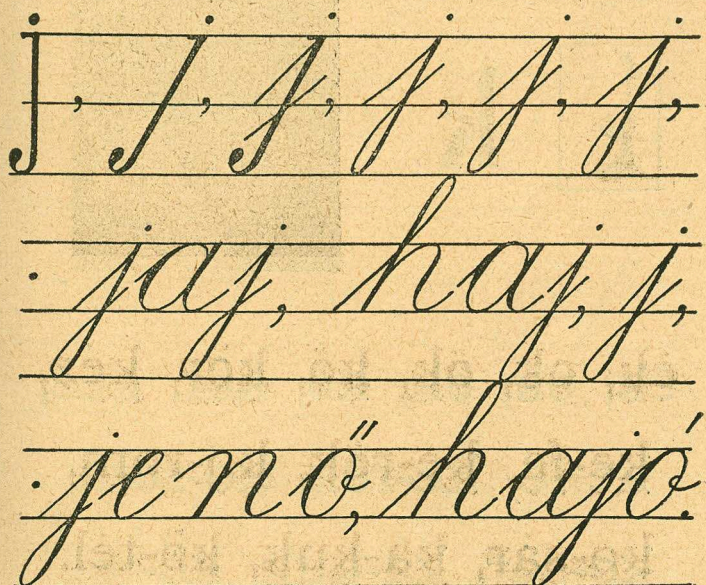 j, j, j, j, j, j,
jaj, haj, j,
jenő, hajó.